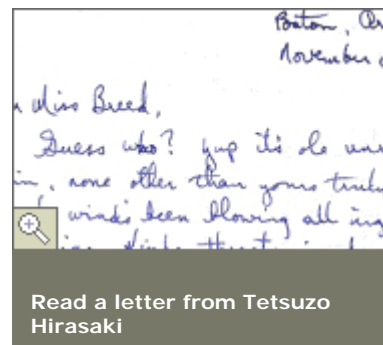 Poston, Ar
November
Miss Breed,
Guess who? yup it's ole
none other than yours
winds been blowing all
Read a letter from Tetsuzo
Hirasaki